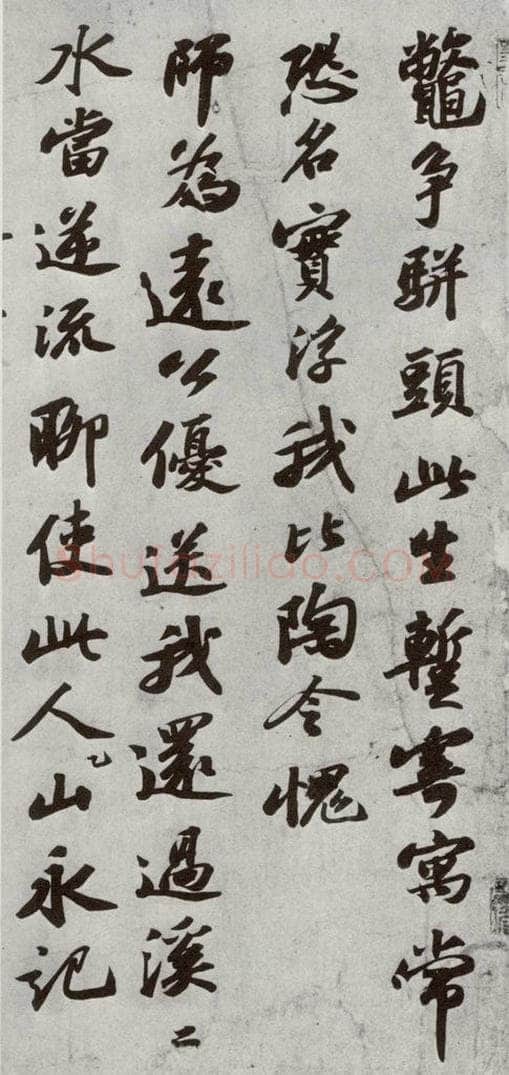 鼈争駢頭此生暫寄寓常
恐名實浮我比陶令愧
師為遠公優送我還過溪二
水當逆流聊使此人山永記
Shufaziliao.COM